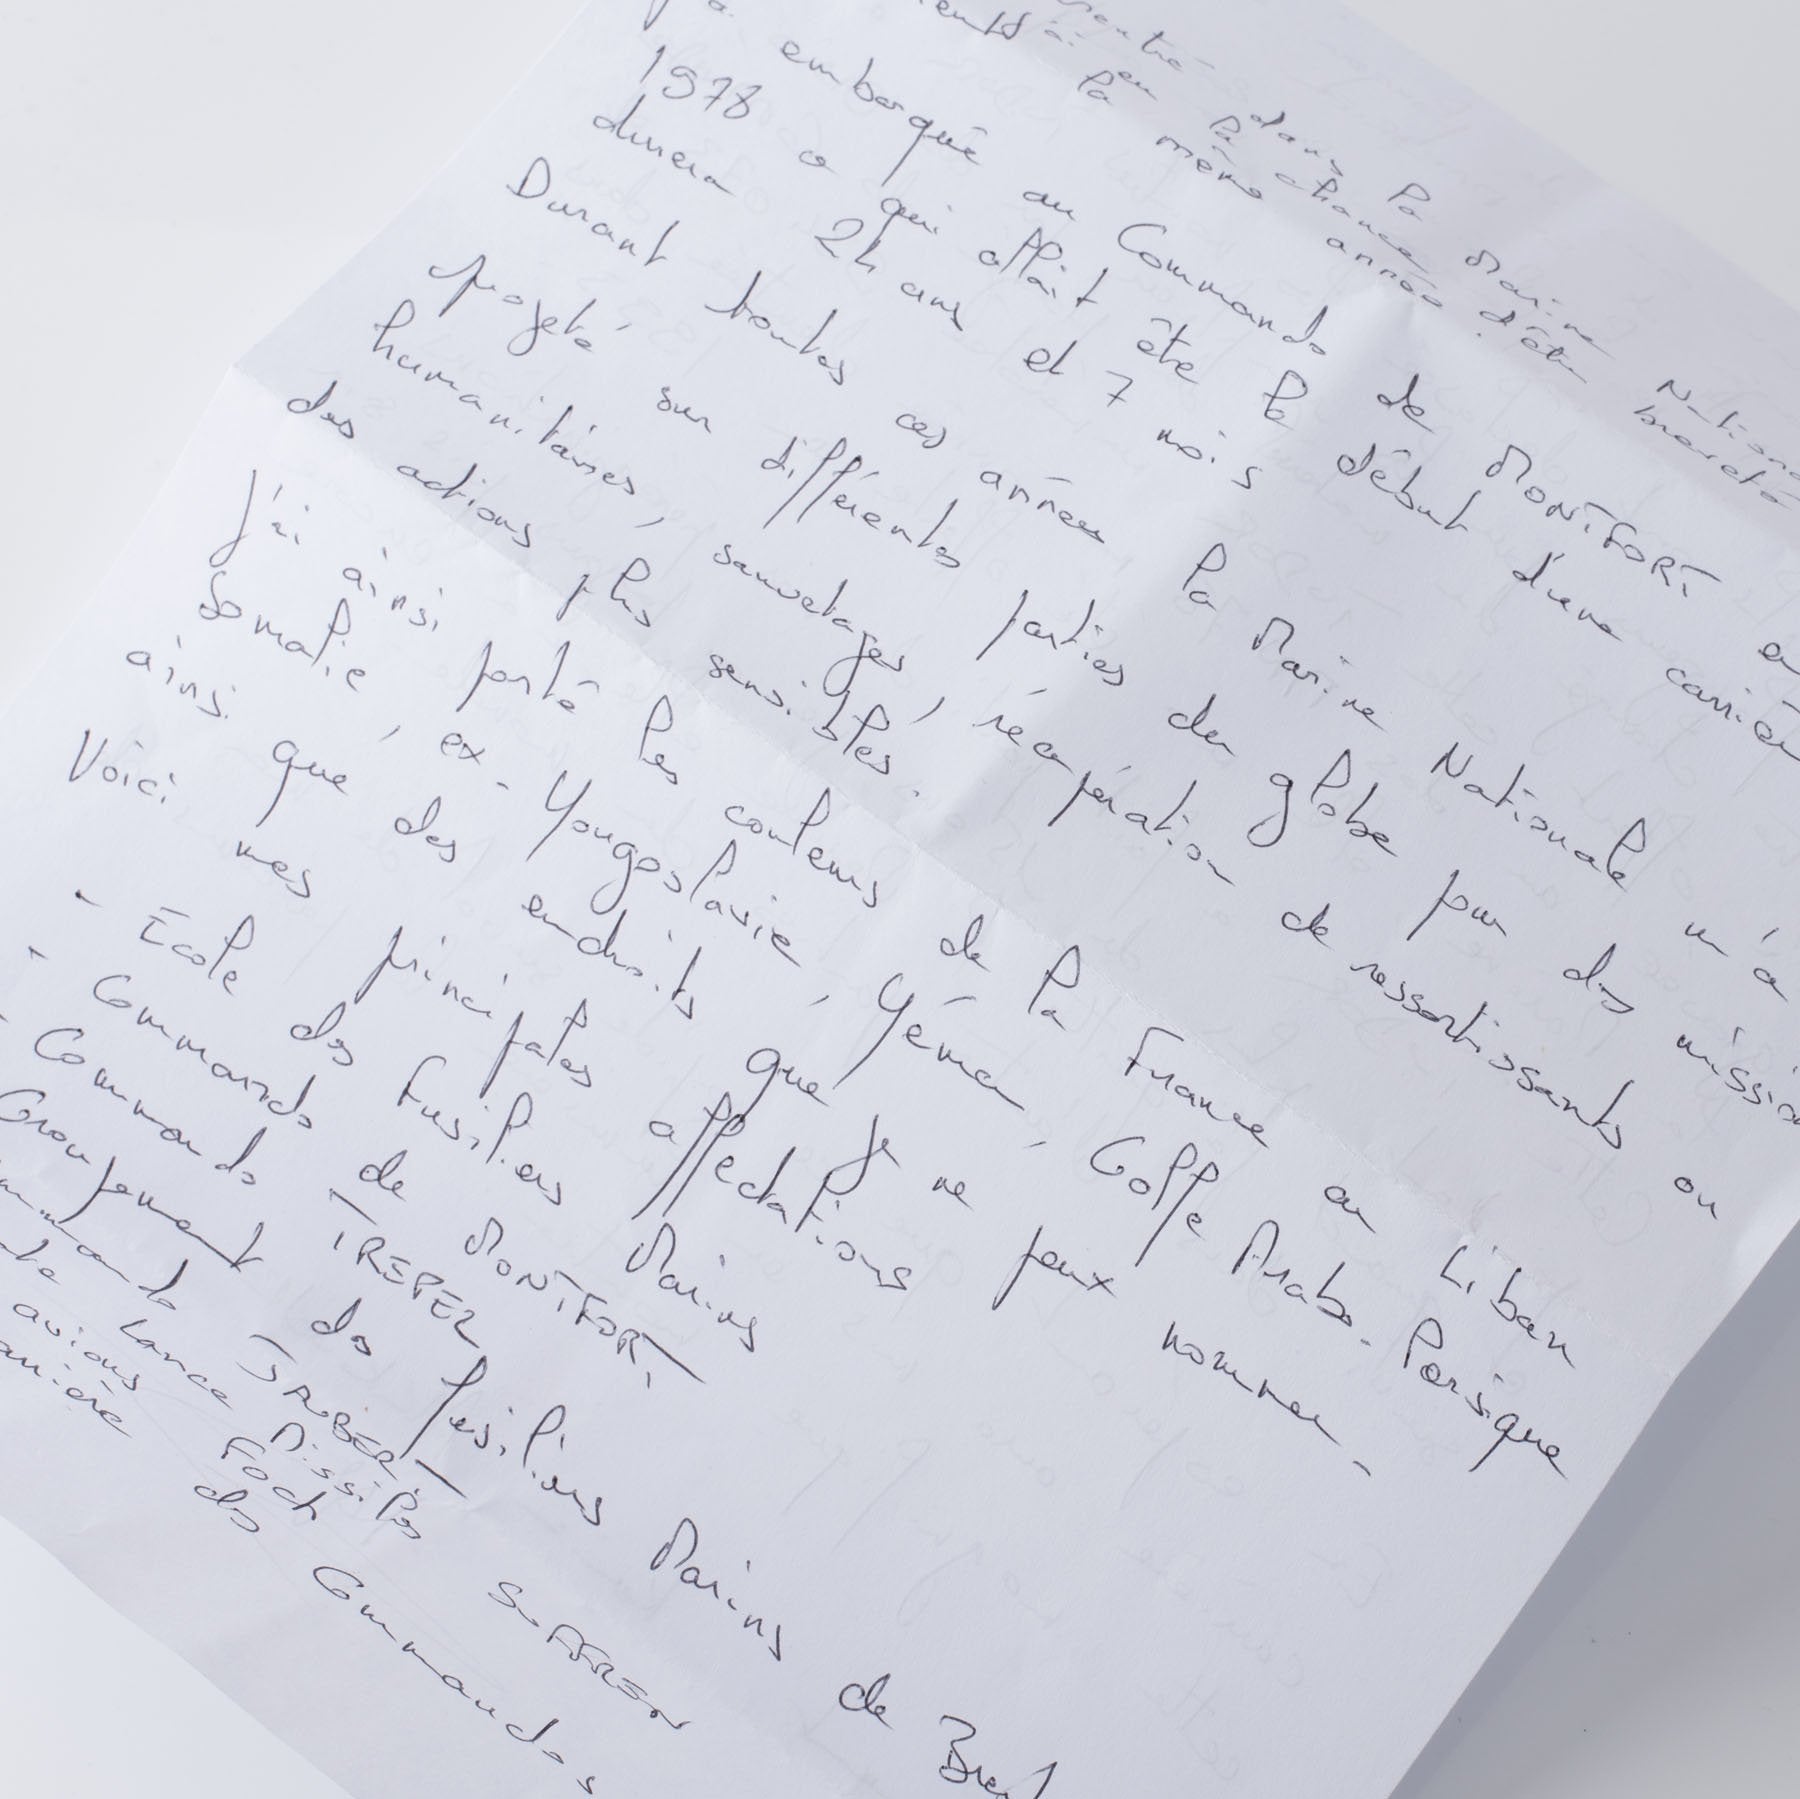 dans la Marine Nationa
eu la chance d'être breveté
la même année.
embarqué au Commando de MONTFORT en
1978 ce qui allait être le début d'une carrièr
durera 24 ans et 7 mois
Durant toutes ces années la Marine Nationale m'a
projeté sur différentes parties du globe pour des mission
humanitaires, sauvetages, récupération de ressortissants ou
des actions plus sensibles.
J'ai ainsi porté les couleurs de la France au Liban
Somalie, ex-Yougoslavie, Yémen, Golfe Arabo-Persique
ainsi que des endroits que je ne peux nommer.
Voici mes principales affectations
- École des Fusiliers Marins
- Commando de MONTFORT
- Commando TREPEL
Groupement des fusiliers Marins de Brest
mmando JAUBERT
te Lance Missiles SUFFREN
avions Foch
des Commandos